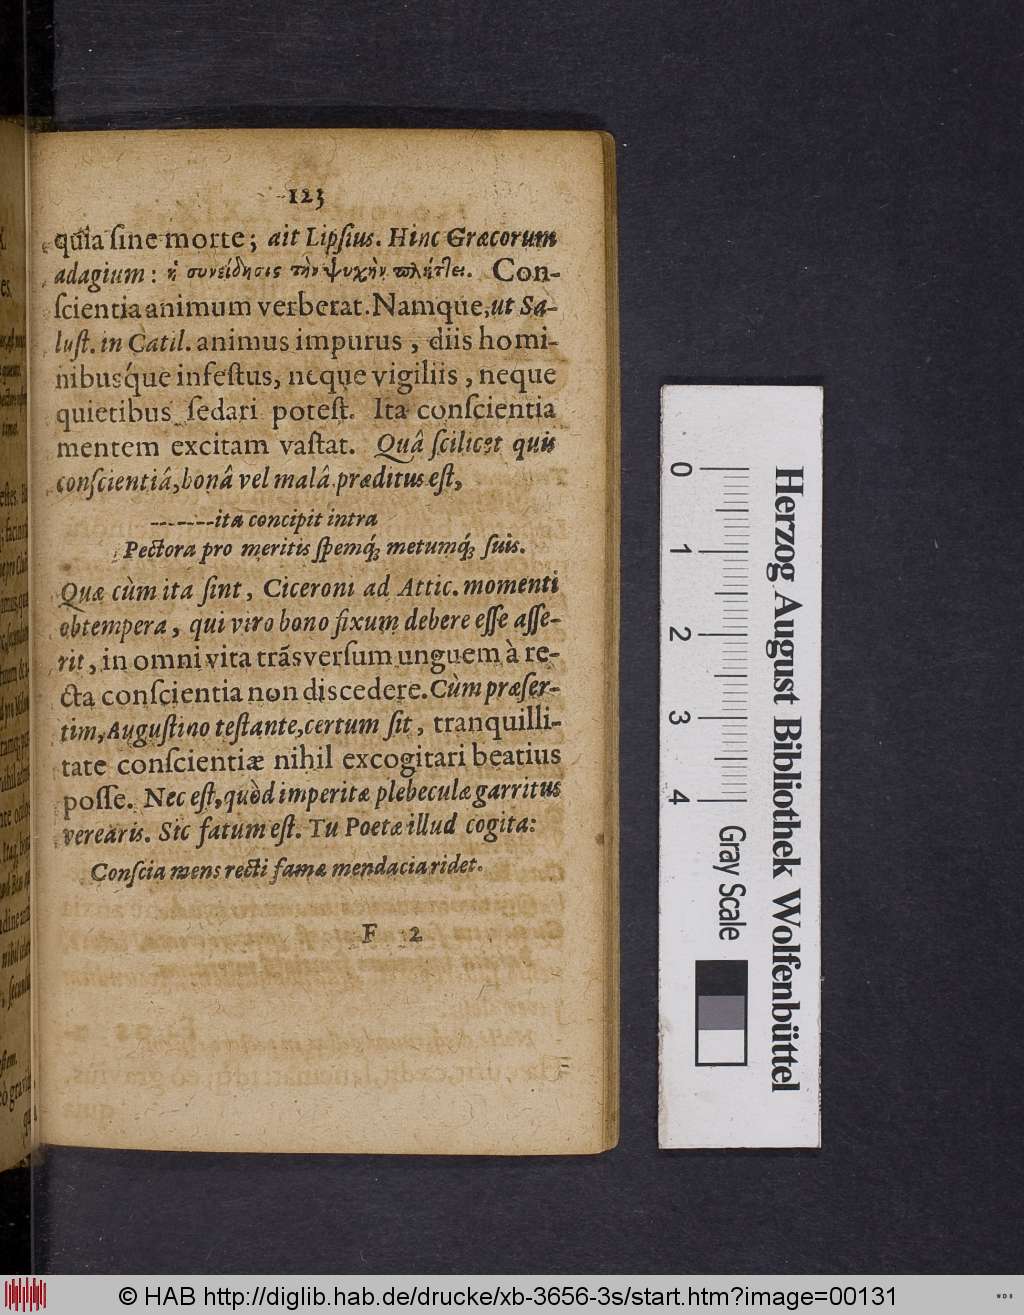 123
quia ſine morte; ait Lipſius. Hinc Græcorum
adagium: ἡ συνείδησις τὴν ψυχὴν πλήτ]ει. Con-
ſcientia animum verberat. Namque, ut Sa-
luſt. in Catil. animus impurus, diis homi-
nibusq́ue infeſtus, neque vigiliis, neque
quietibus ſedari poteſt. Ita conſcientia
mentem excitam vaſtat. Quâ ſcilicet quis
conſcientiâ, bonâ vel malâ præditus eſt,
-------ita concipit intra
Pectora pro meritis ſpemq́; metumq́; ſuis.
Quæ cùm ita ſint, Ciceroni ad Attic. momenti
obtempera, qui viro bono fixum debere eſſe aſſe-
rit, in omni vita trãsverſum unguem à re-
cta conſcientia non discedere. Cùm præſer-
tim, Auguſtino teſtante, certum ſit, tranquilli-
tate conſcientiæ nihil excogitari beatius
poſſe. Nec eſt, quòd imperitæ plebeculæ garritus
verearis. Sic fatum eſt. Tu Poetæ illud cogita:
Conſcia mens recti famæ mendacia ridet.
F 2
0 1 2 3 4 Gray Scale
Herzog August Bibliothek Wolfenbüttel
© HAB http://diglib.hab.de/drucke/xb-3656-3s/start.htm?image=00131